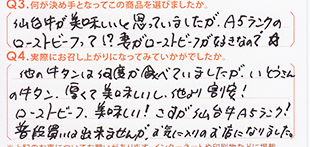 Q3.何が決め手となってこの商品を選びましたか。
仙台牛が美味しいと思っていましたが、A5ランクの
ローストビーフって!?妻がローストビーフが好きなので
Q4.実際にお召し上がりになってみていかがでしたか。
他の牛タンは何度か食べていましたが、いとうさん
の牛タン、厚くて美味しいし、他より割安!
ローストビーフ、美味しい!さすが仙台牛A5ランク!
普段買いは出来ませんが、お気に入りのお店になりました。